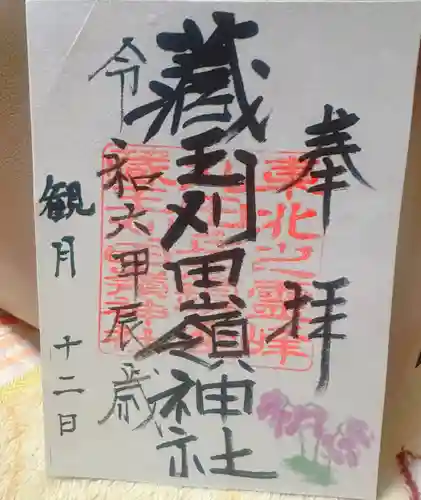 奉拝
藏王刈田嶺神社
令和六甲辰歳
観月十二日
東北之霊峰